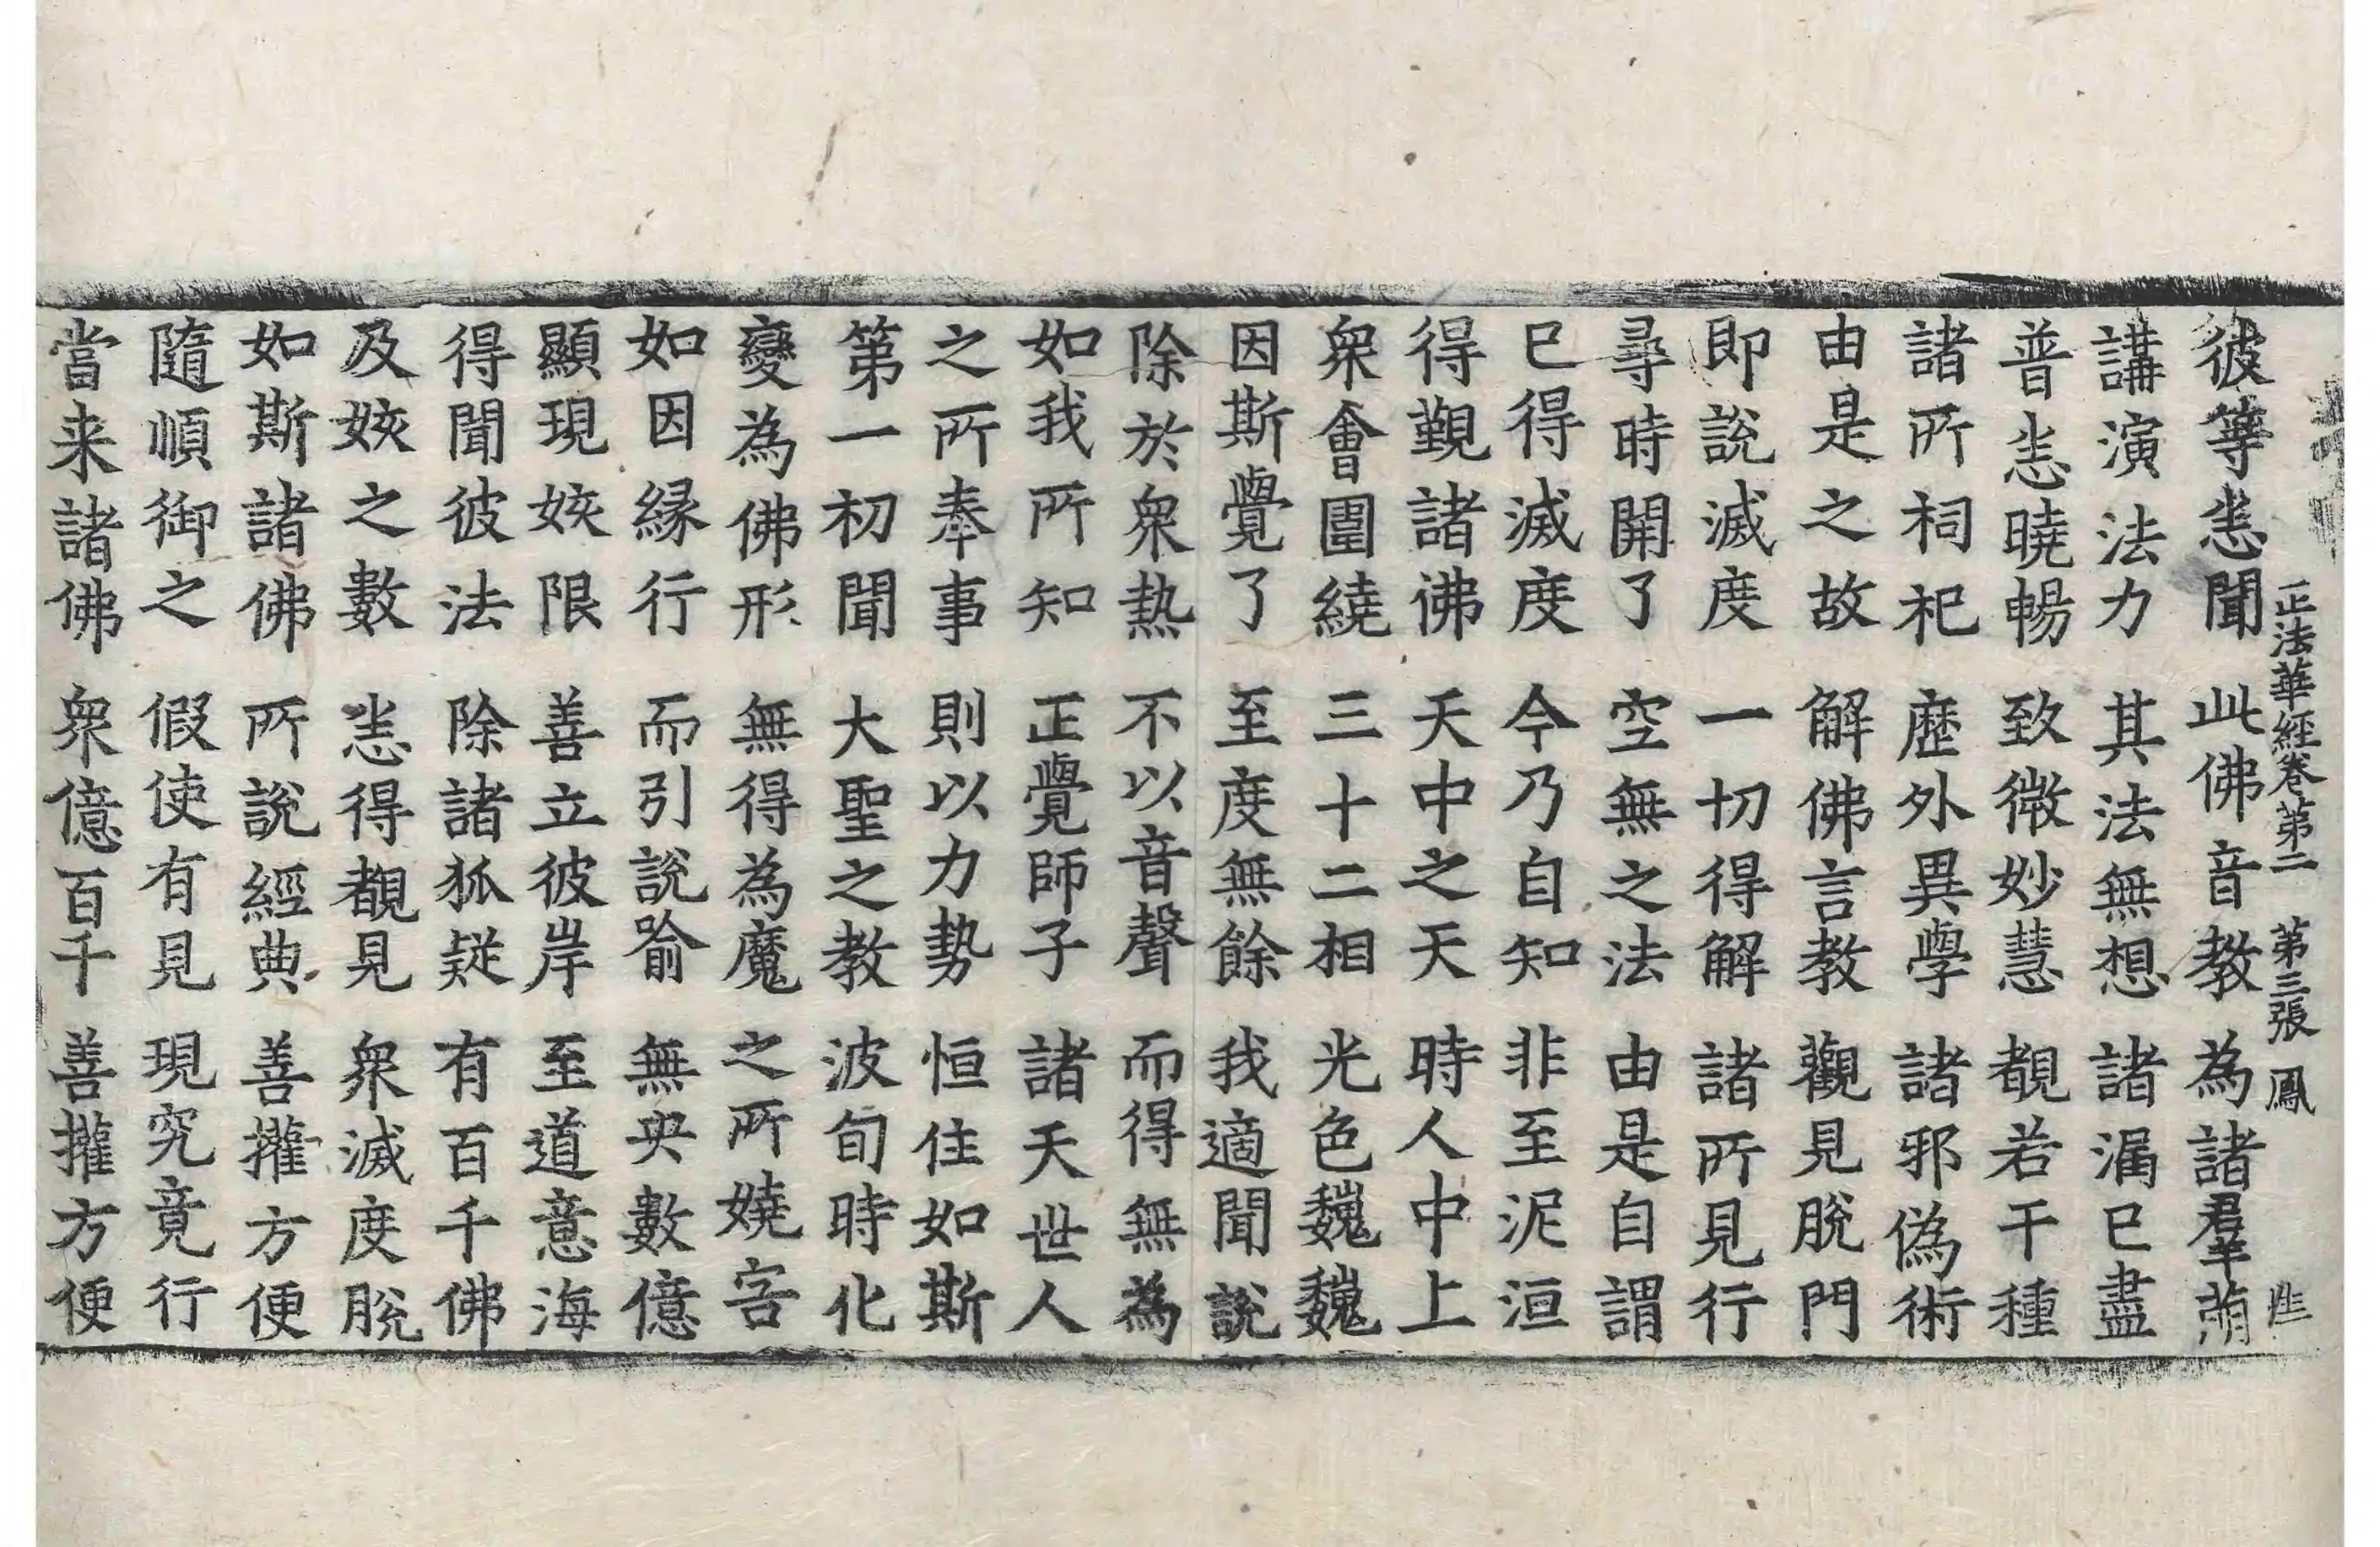 正法華經卷第二 第三張 鳳
彼等恙聞 此佛音教 為諸羣萠
講演法力 其法無想 諸漏已盡
普恙曉暢 致微妙慧 覩若干種
諸所祠祀 歷外異學 諸邪偽術
由是之故 解佛言教 觀見脫門
即說滅度 一切得解 諸所見行
尋時開了 空無之法 由是自謂
已得滅度 今乃自知 非至泥洹
得覲諸佛 天中之天 時人中上
衆會圍繞 三十二相 光色魏魏
因斯覺了 至度無餘 我適聞說
除於衆熱 不以音聲 而得無為
如我所知 正覺師子 諸天世人
之所奉事 則以力勢 恒住如斯
第一初聞 大聖之教 波旬時化
變為佛形 無得為魔 之所嬈害
如因緣行 而引說喻 無央數億
顯現姟限 善立彼岸 至道意海
得聞彼法 除諸狐疑 有百千佛
及姟之數 恙得覩見 衆滅度脫
如斯諸佛 所說經典 善攉方便
隨順御之 假使有見 現究竟行
當来諸佛 衆億百千 善攉方便